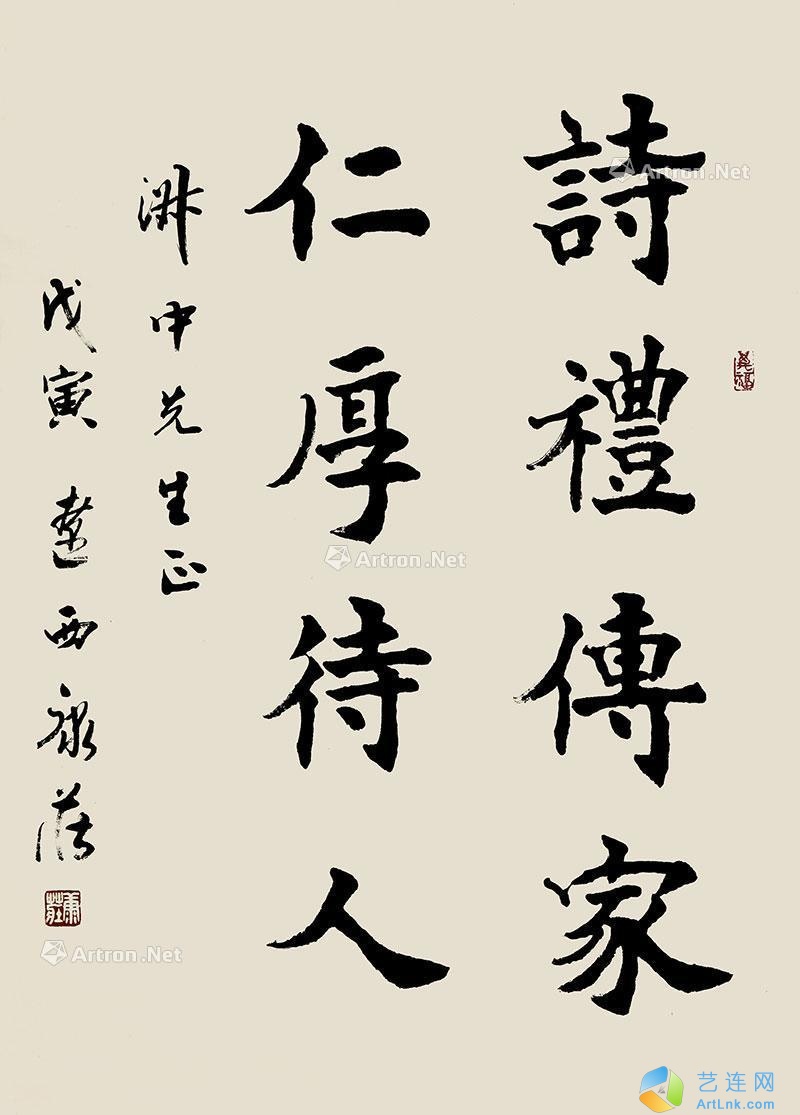 詩禮傳家
仁厚待人
中先生正
戊寅 遼西康莊
康莊
Artron.Net
Artron.Net
Artron.Net
艺连网
ArtLnk.com